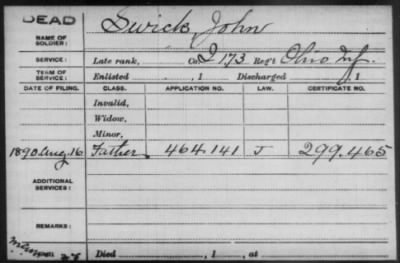 DEAD
NAME OF SOLDIER: Swick, John
SERVICE: Late rank, Co. I 173 Reg't Ohio Inf.
TERM OF SERVICE: Enlisted , 1 Discharged , 1
DATE OF FILING. CLASS. APPLICATION NO. LAW. CERTIFICATE NO.
Invalid,
Widow,
Minor,
1890 Aug. 16 Father 464.141 J 299.465
ADDITIONAL SERVICES:
REMARKS:
Died , 1 , at